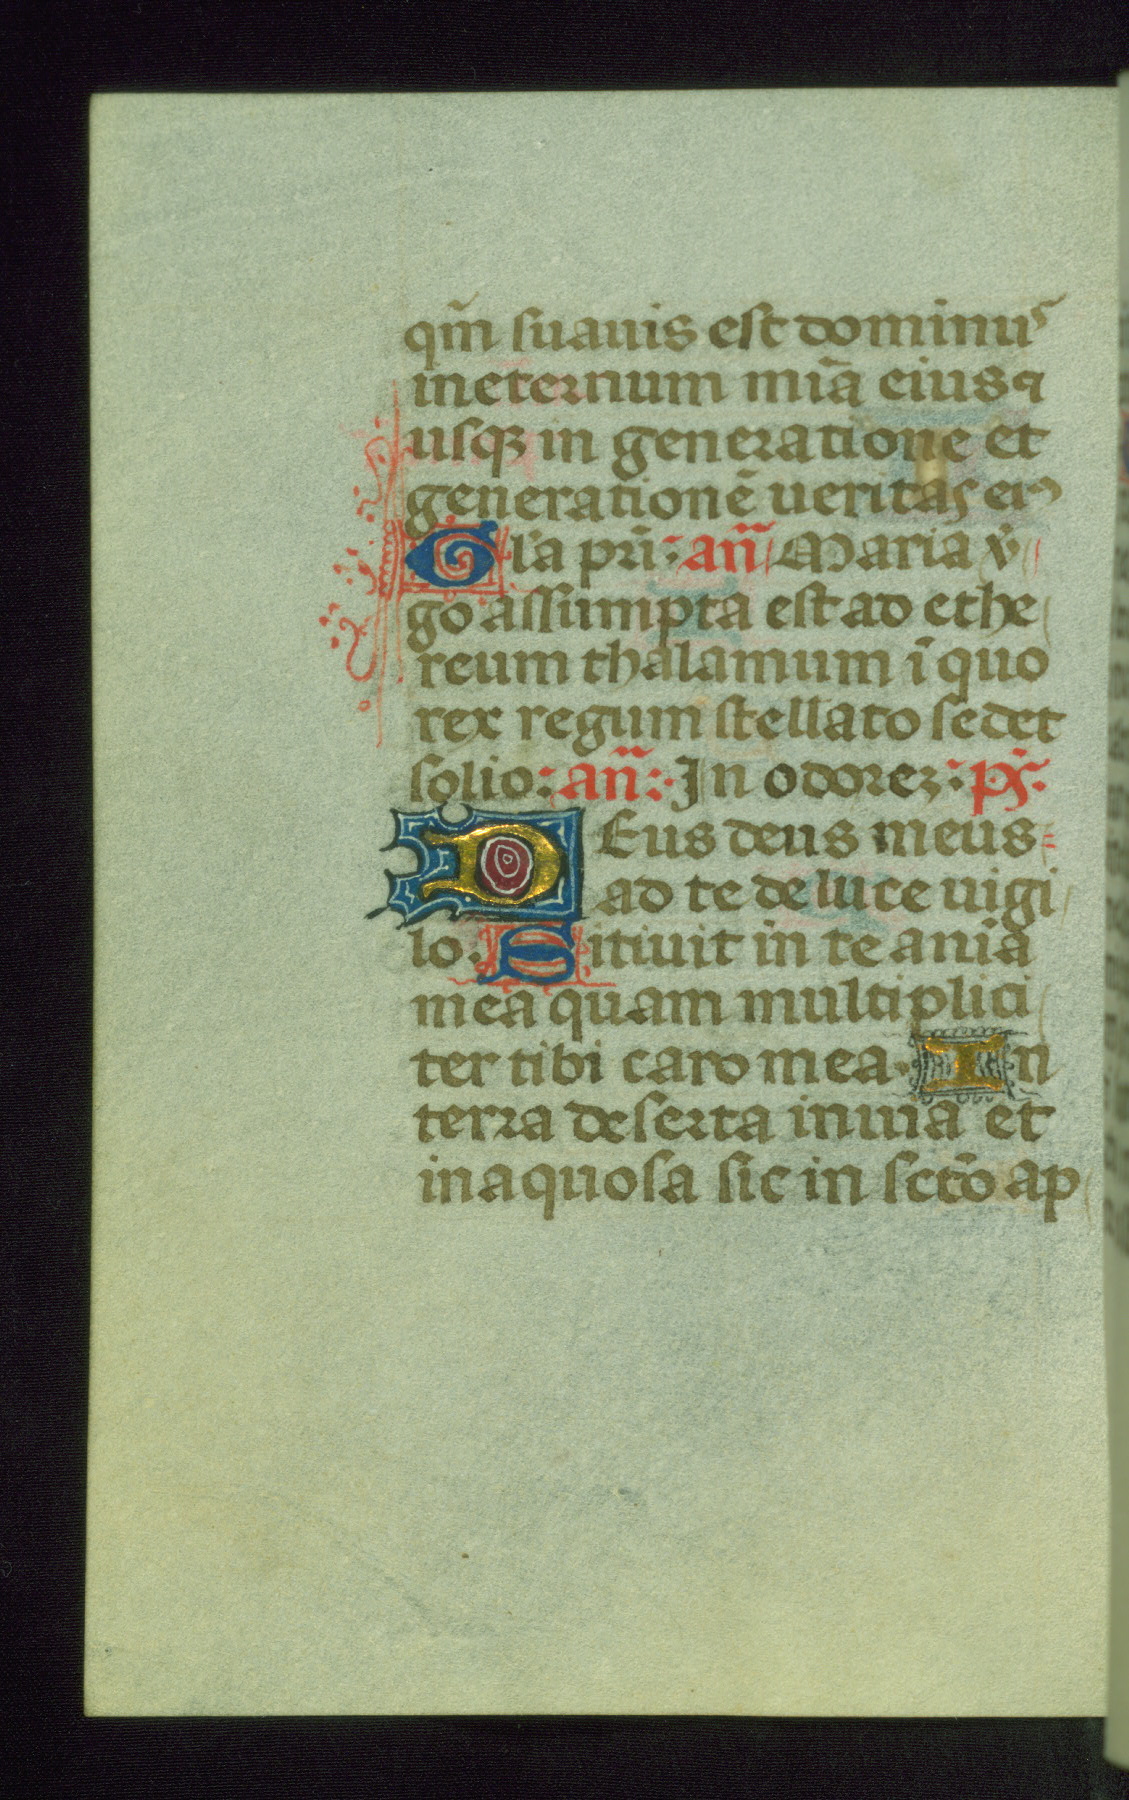 qm̄ suauis est dominuˢ
in eternum mīa eius ⁊
usqꝫ in generatione et
generationē ueritas eiꝰ
Gl'a pr̄i: an̄ Maria v̄
go assumpta est ad ethe
reum thalamum ī quo
rex regum stellato sedet
solio: an̄: In odorez: ps̄.
DEus deus meus
ad te de luce uigi
lo. Sitiuit in te anīa
mea quam multiplici
ter tibi caro mea. In
terra deserta inuia et
inaquosa sic in sctō ap